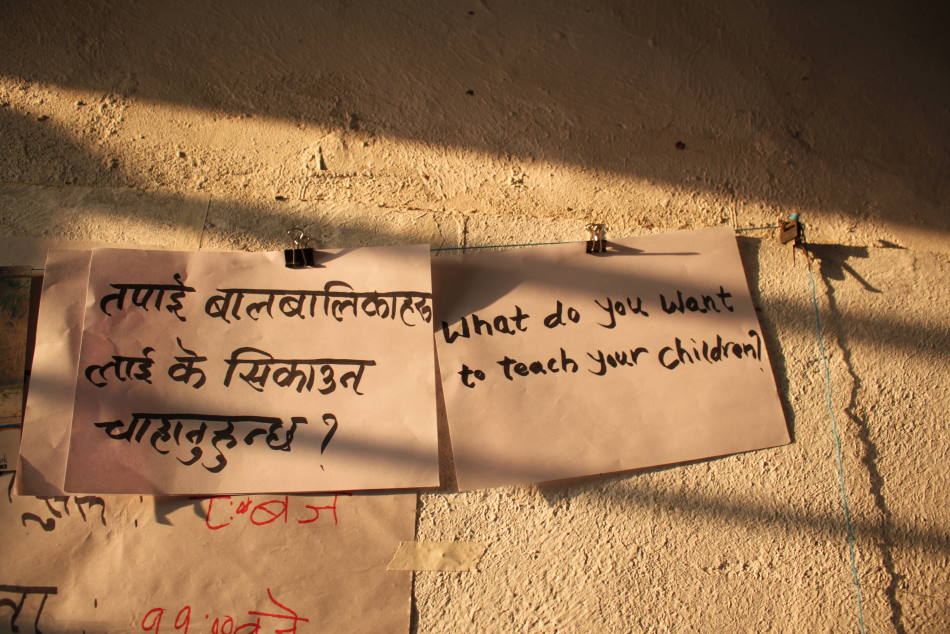 तपाई बालबालिकाहरु
लाई के सिकाउन
चाहानुहुन्छ ?
What do you want
to teach your children?
बजे
११:००बजे